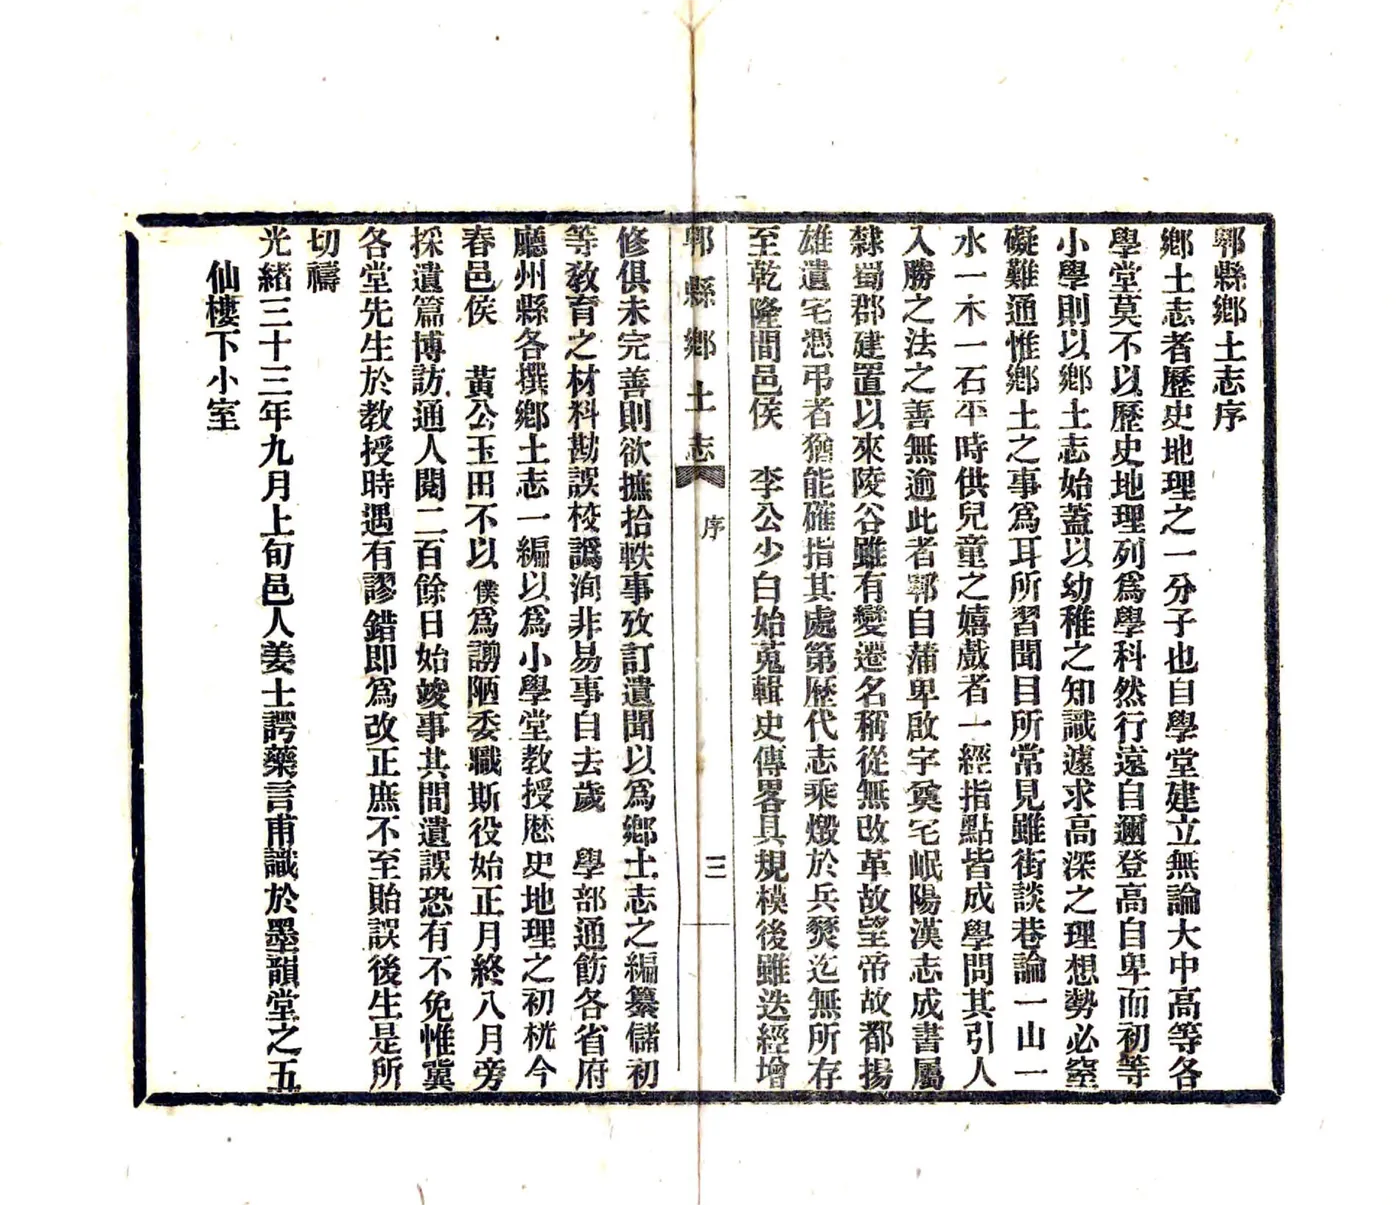 郫縣鄉土志序
鄉土志者歷史地理之一分子也自學堂建立無論大中高等各
學堂莫不以歷史地理列爲學科然行遠自邇登高自卑而初等
小學則以鄉土志始蓋以幼稚之知識遽求高深之理想勢必窒
礙難通惟鄉土之事爲耳所習聞目所常見雖街談巷論一山一
水一木一石平時供兒童之嬉戲者一經指點皆成學問其引人
入勝之法之善無逾此者郫自蒲卑啟宇奠宅岷陽漢志成書屬
隸蜀郡建置以來陵谷雖有變遷名稱從無改革故望帝故都揚
雄遺宅憑弔者猶能確指其處第歷代志乘燬於兵燹迄無所存
至乾隆間邑侯　李公少白始蒐輯史傳畧具規模後雖迭經增
郫縣鄉土志　序　三
修俱未完善則欲摭拾軼事攷訂遺聞以爲鄉土志之編纂儲初
等教育之材料勘誤校譌洵非易事自去歲　學部通飭各省府
廳州縣各撰鄉土志一編以爲小學堂教授歷史地理之初桄今
春邑侯　黃公玉田不以僕爲謭陋委職斯役始正月終八月旁
採遺篇博訪通人閱二百餘日始竣事其間遺誤恐有不免惟冀
各堂先生於教授時遇有謬錯即爲改正庶不至貽誤後生是所
切禱
光緒三十三年九月上旬邑人姜士諤藥言甫識於墨韻堂之五
仙樓下小室